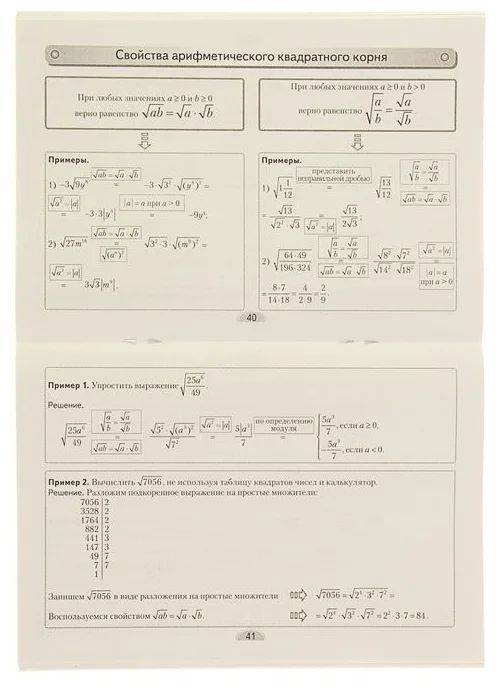 Свойства арифметического квадратного корня
При любых значениях a ≥ 0 и b ≥ 0
верно равенство √ab = √a · √b.
При любых значениях a ≥ 0 и b > 0
верно равенство √(a/b) = √a/√b
Примеры.
√ab = √a · √b
1) −3√9y⁸ = −3·√3²·√(y⁴)² =
√a² = |a| |a| = a при a > 0
= −3·3|y⁴| = −9y⁴;
√ab = √a · √b
2) √27m¹⁸ = √3²·3·√(m⁹)² =
√(aⁿ)²
√a² = |a|
= 3√3|m⁹|.
Примеры.
1) √1 1/12 представить неправильной дробью √13/12 √(a/b) = √a/√b
√ab = √a · √b
= √13/√2²·√3 √a² = |a| = √13/2√3;
2) √(64·49/196·324) √(a/b) = √a/√b √ab = √a · √b √8²·√7²/√14²·√18² √a² = |a| = |a| = a при a > 0
= 8·7/14·18 = 4/2·9 = 2/9.
40
Пример 1. Упростить выражение √(25a⁶/49).
Решение.
√(25a⁶/49) √(a/b) = √a/√b = √ab = √a · √b √5²·√(a³)²/√7² √a² = |a| = 5|a³|/7 по определению модуля = { 5a³/7, если a ≥ 0,
−5a³/7, если a < 0.
Пример 2. Вычислить √7056, не используя таблицу квадратов чисел и калькулятор.
Решение. Разложим подкоренное выражение на простые множители:
7056 | 2
3528 | 2
1764 | 2
882 | 2
441 | 3
147 | 3
49 | 7
7 | 7
1 |
Запишем √7056 в виде разложения на простые множители √7056 = √2⁴·3²·7² =
Воспользуемся свойством √ab = √a · √b. = √2⁴·√3²·√7² = 2²·3·7 = 84.
41